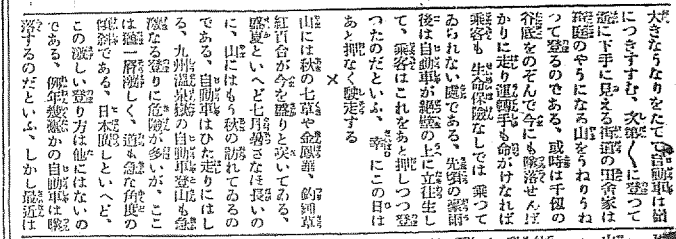 大きなうなりをたてて自動車は嶺
につきすすむ、次第〳〵に登つて
遂に下手に見える街道の田舎家は
箱庭のやうになる山をうねりうね
つて登るのである、或時は千仭の
谷底をのぞんで今にも墜落せんば
かりに走り運轉手も命がけなれば
乘客も 生命保險なしでは 乘つて
ゐられない處である。先頃の豪雨
後は自動車が絶壁の上に立往生し
て、乘客はこれをあと押しつつ登
つたのだといふ、幸にこの日は
あと押なく駛走する
×
山には秋の七草や金鳳華、釣鐘草
紅百合が今を盛りと咲いてゐる、
盛夏といへど七月暑さなほ長いの
に、山にはもう秋の訪れてゐるの
である、自動車はひた走りにはし
る、九州温泉嶽の自動車登山も急
激なる登りに危險が多いが、ここ
は遙一層激しく、道も急な角度の
傾斜である、日本廣しといへど、
この激しい登り方は他にはないの
である、例年幾臺かの自動車は墜
落するのだといふ、しかし最近は